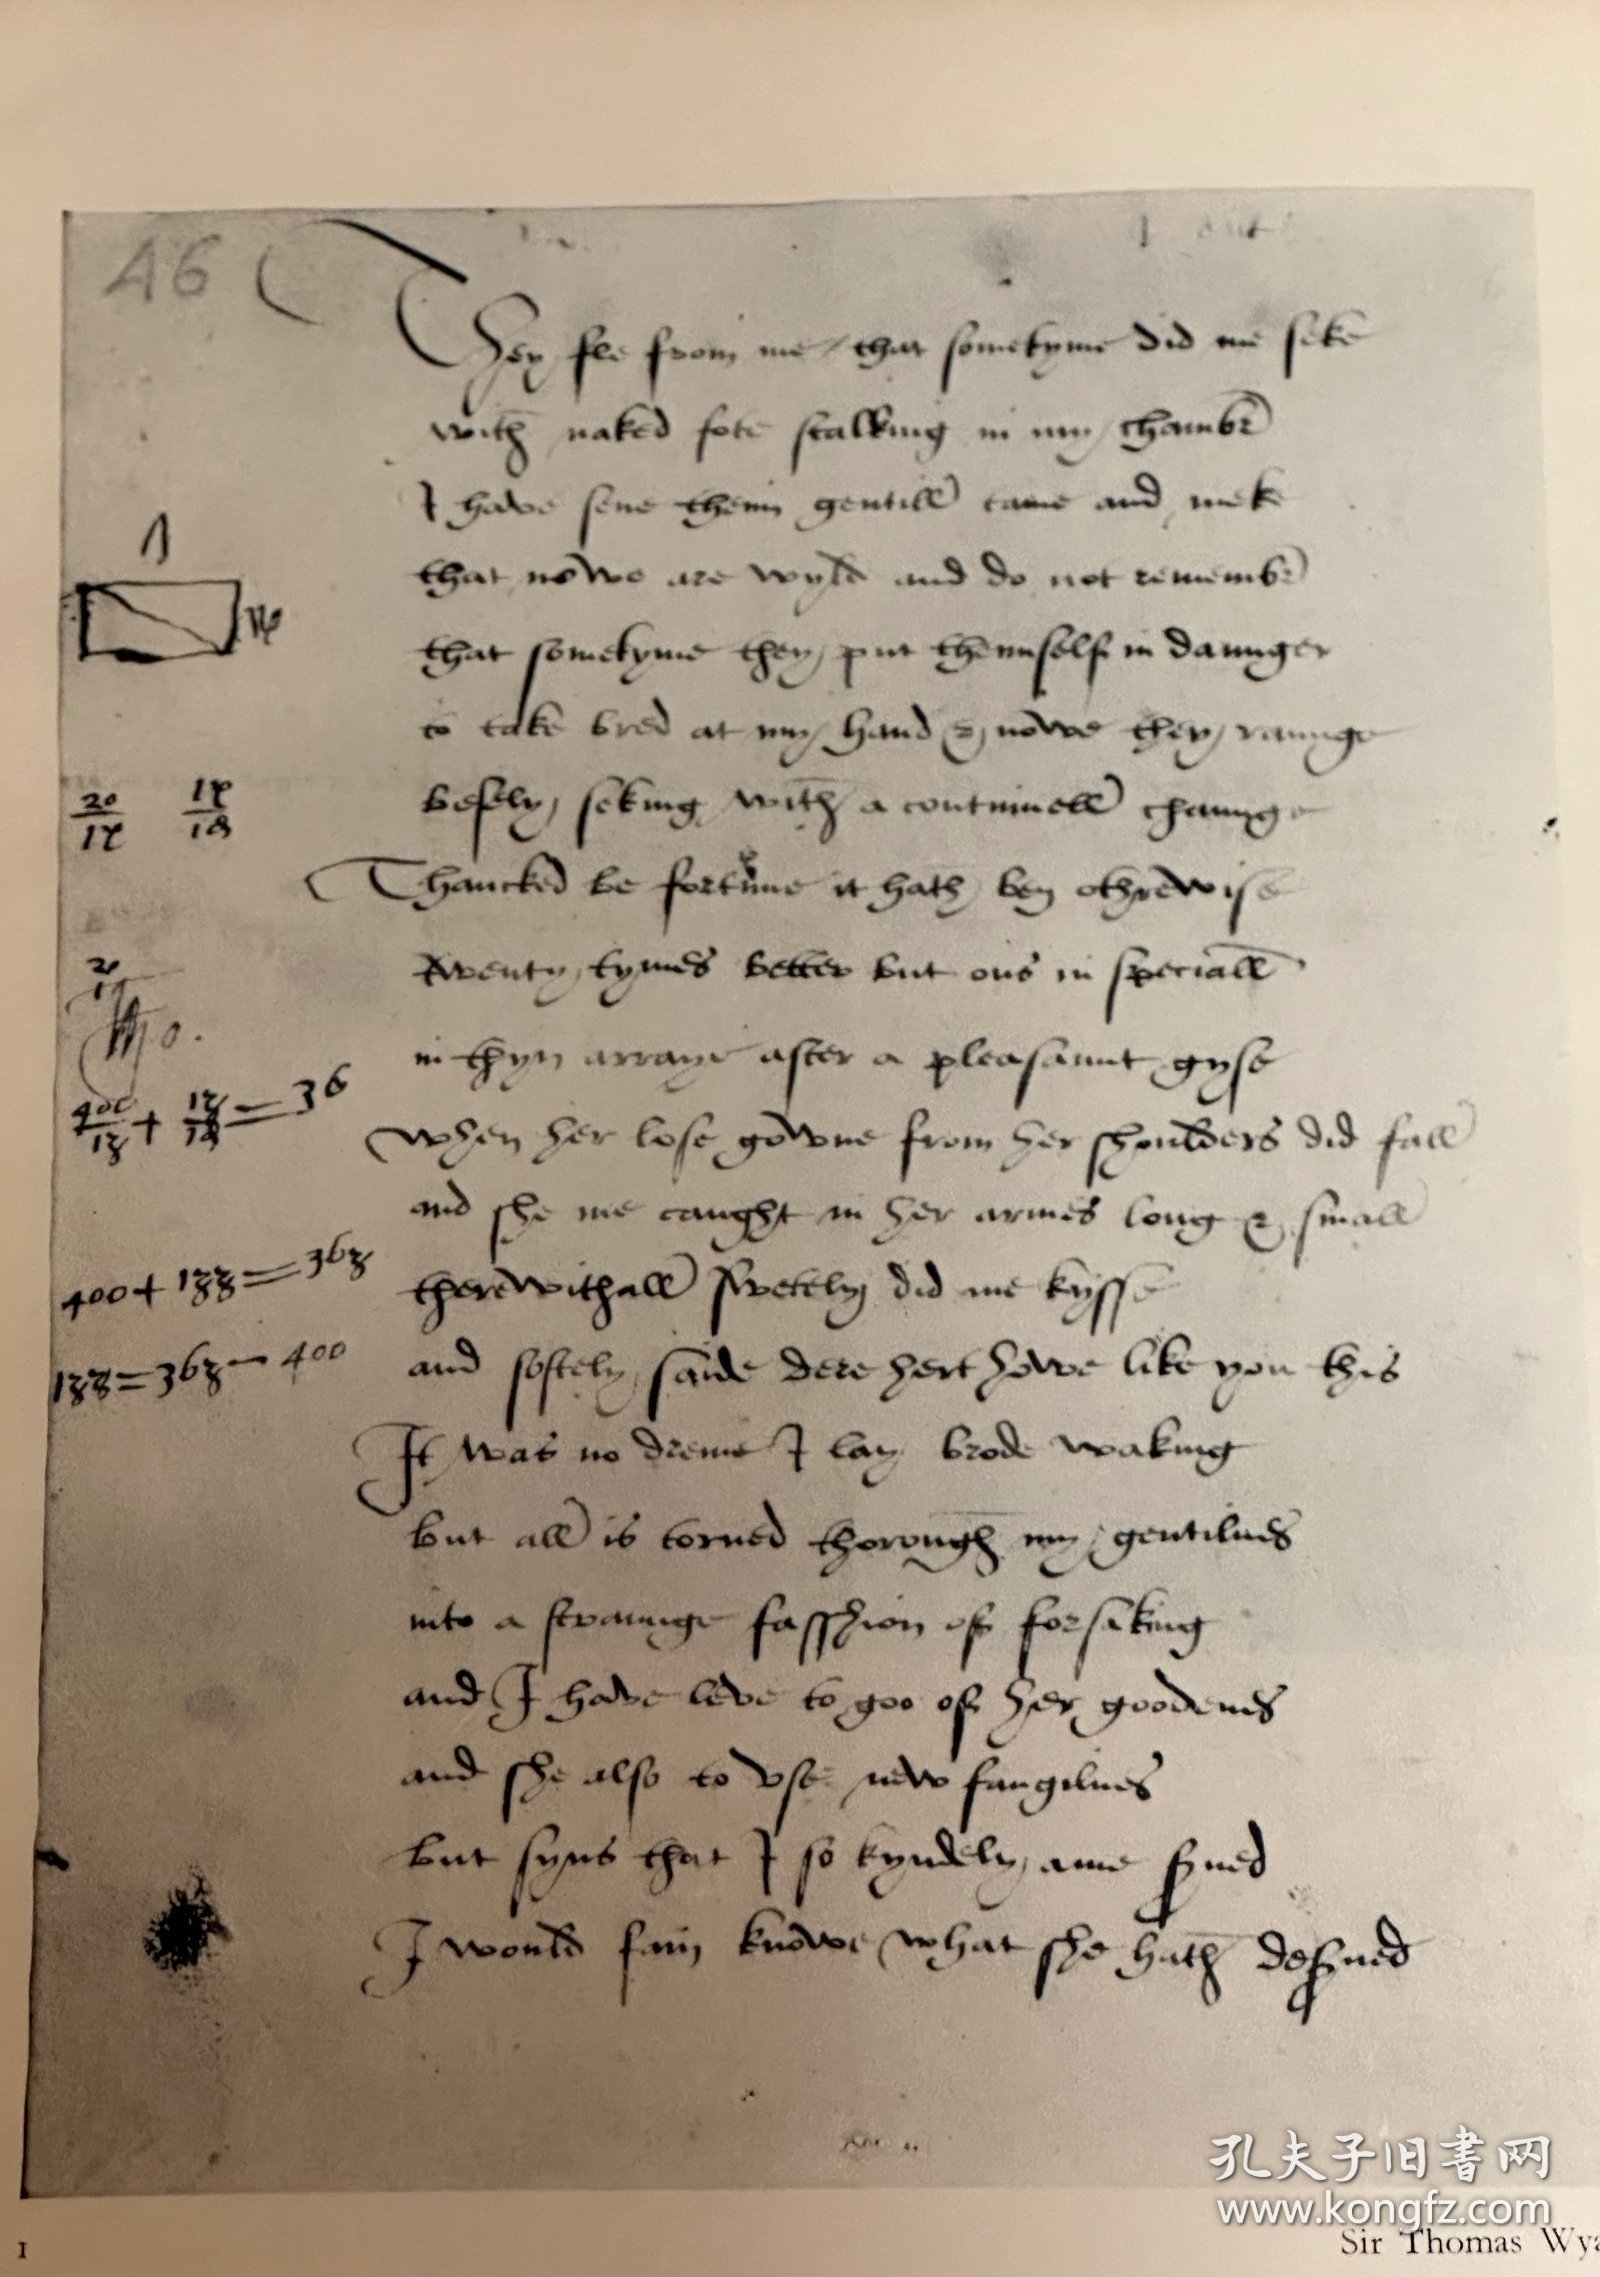 46
They fle from me / that sometyme did me seke
with naked fote stalking in my chambr
I have sene theim gentill tame and meke
that nowe are wyld and do not remembr
that sometyme they put theimself in daunger
to take bred at my hand & nowe they raunge
besely seking with a continuell chaunge
20/1z 1z/19
Thancked be fortune it hath ben othrewise
twenty tymes better but ons in speciall
in thyn arraye after a pleasaunt gyse
400/1z + 1z/19 = 36
When her lose gowne from her shoulders did fall
and she me caught in her armes long & small
400 + 1zz = 36z
therewithall swetely did me kysse
1zz = 36z - 400
and softely saide dere hert howe like you this
It was no dreme I lay brode waking
but all is torned thorough my gentilnes
into a straunge fasshion of forsaking
and I have leve to goo of her goodenes
and she also to vse new fangilnes
but syns that I so kyndely ame serued
I would fain knowe what she hath deserued
孔夫子旧书网
www.kongfz.com
1
Sir Thomas Wya